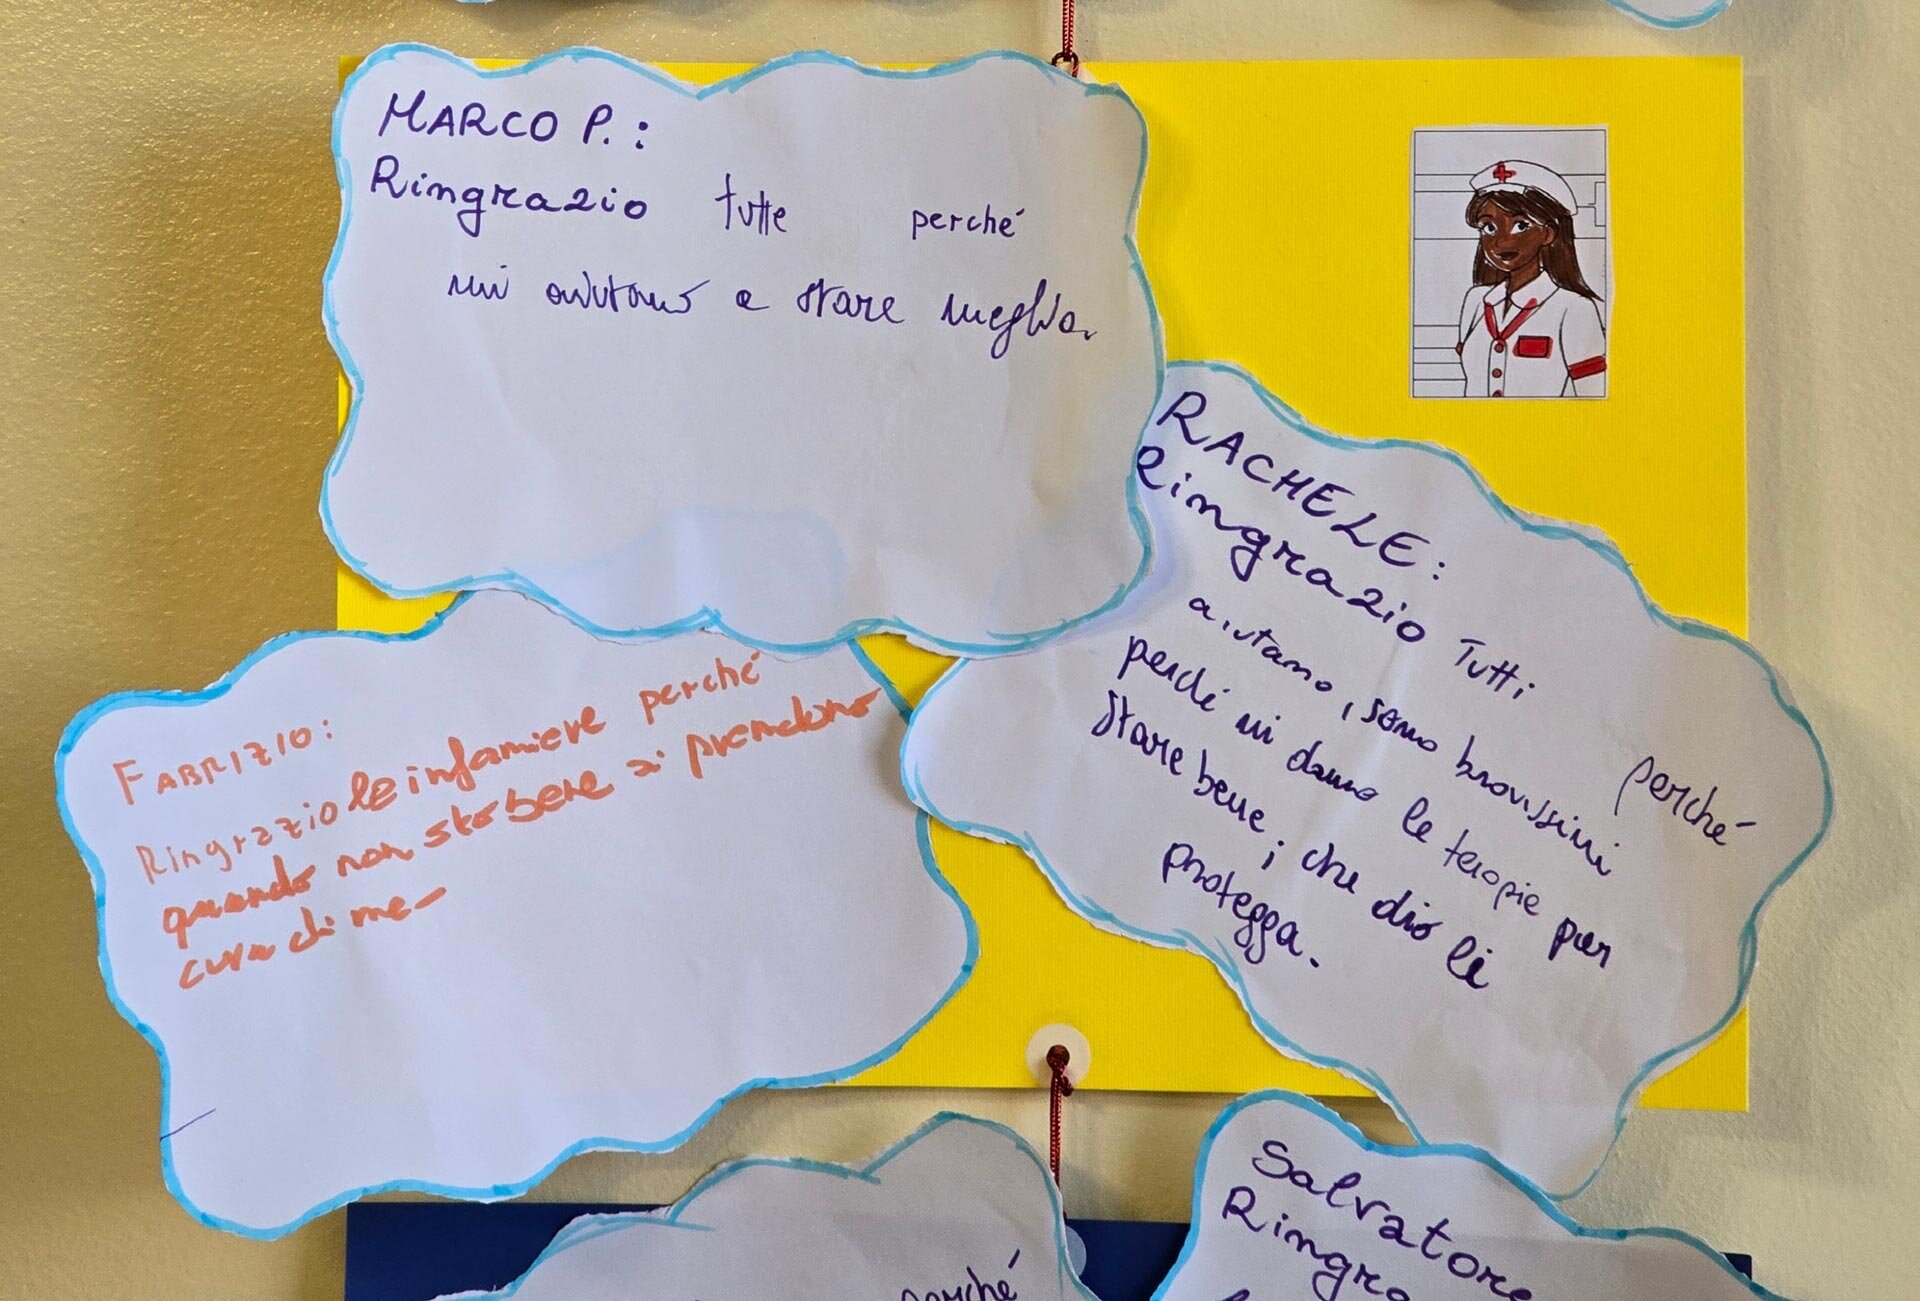 MARCO P.:
Ringrazio tutte perché
mi aiutano a stare meglio.
RACHELE:
Ringrazio Tutti perché
aiutano, sono bravissimi
perché mi danno le terapie per
stare bene; che dio li
protegga.
FABRIZIO:
Ringrazio le infamiere perché
quando non sto bene si prendono
cura di me-
perché
Salvatore
Ringra